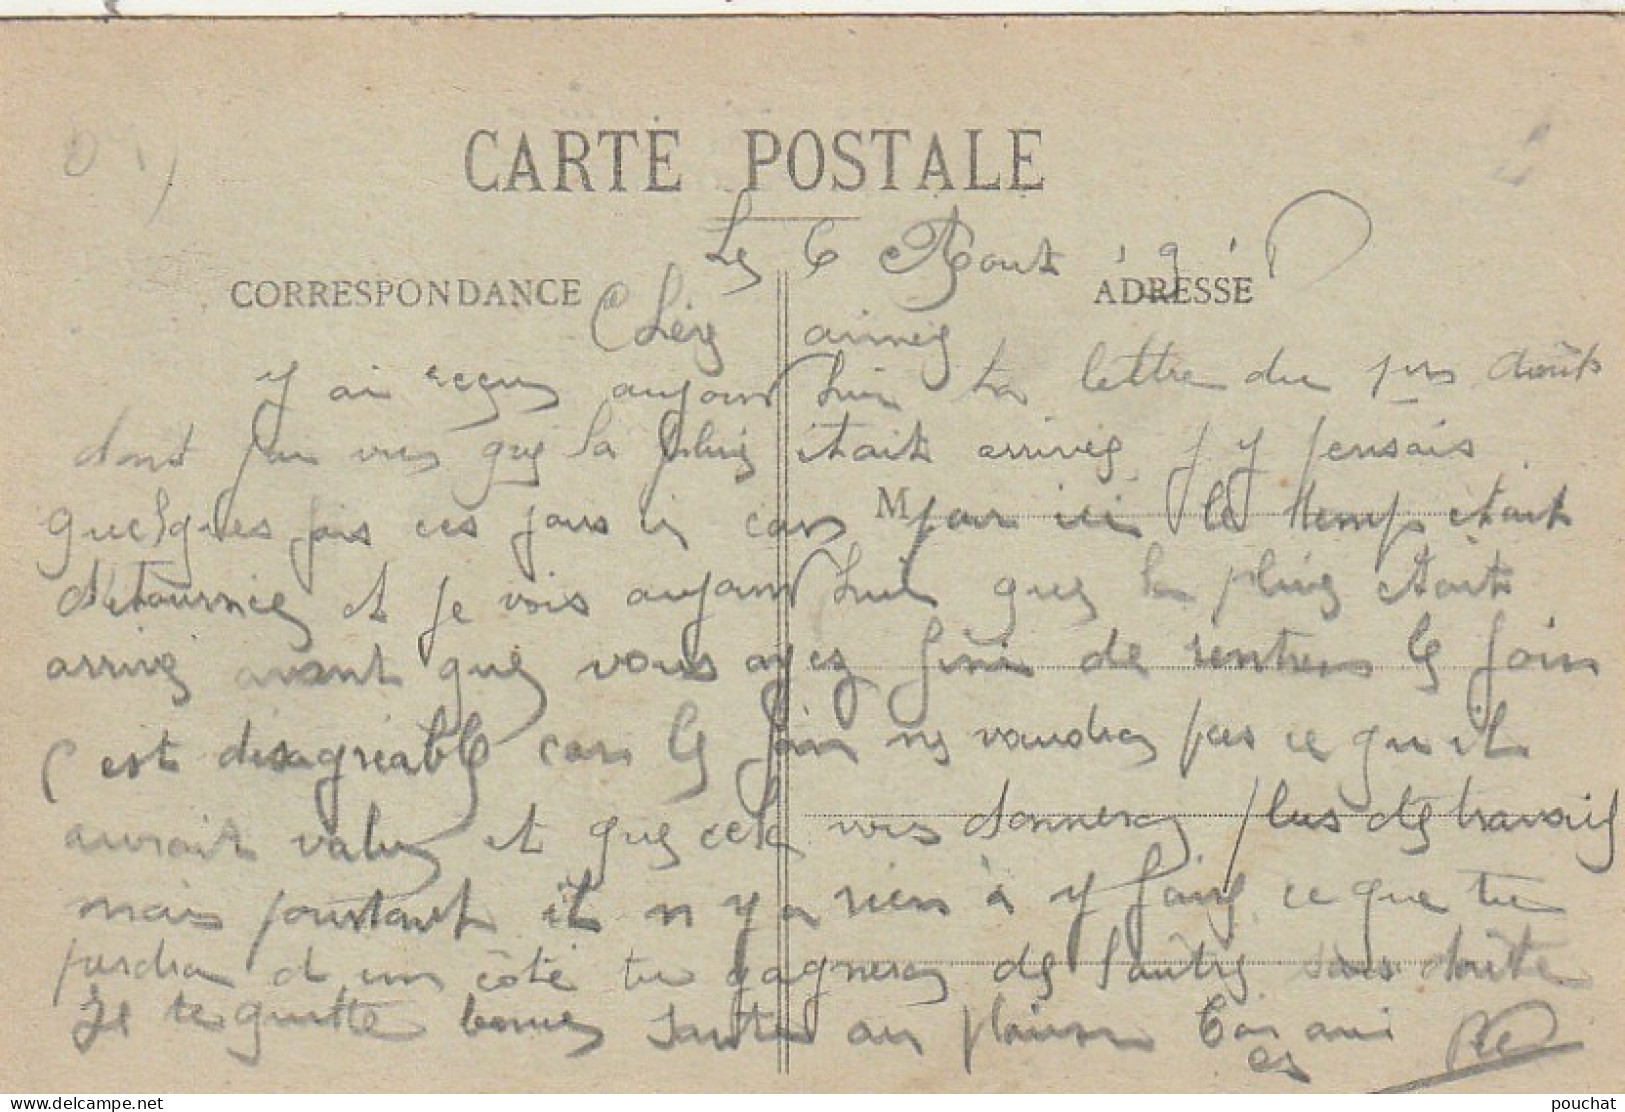 CARTE POSTALE
Le 6 Aout
CORRESPONDANCE
ADRESSE
Chere aimée
J ai reçu aujourd hui ta lettre du 1er Août
dont j'ai vu que la pluie était arrivée j y pensais
M
quelques fois ces jours ci car par ici le temps etait
détournée et je vois aujourd hui que la pluie etait
arrive avant que vous ayez fini de rentrer le foin
c est disagréable car le foin ne vaudra pas ce qu il
aurait value et que cela vous donnera plus de travail
mais pourtant il n y a rien à y faire ce que tu
perdra d un côté tu gagnera de l'autre sans doute
Je te quitte bonne santé au plaisir ton ami
pouchat